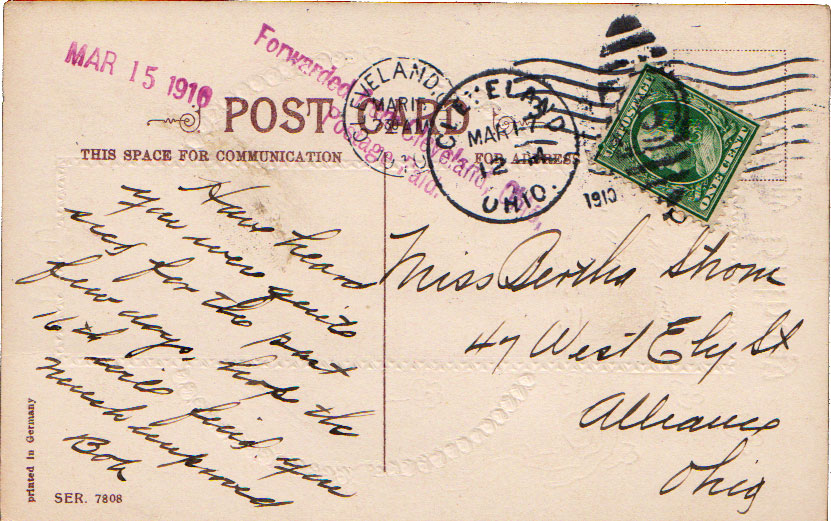 MAR 15 1910
Forwarded from Cleveland, Ohio,
Postage Paid.
CLEVELAND,
MAR 17
1910
CLEVELAND
MAR 17
12 M
OHIO.
1910
U.S. POSTAGE
ONE CENT
POST CARD
THIS SPACE FOR COMMUNICATION
FOR ADDRESS
Have heard
you were quite
sick for the past
few days, hope the
16th will find you
much improved
Bob
Miss Bertha Strom
47 West Ely St
Alliance
Ohio
printed in Germany
SER. 7808